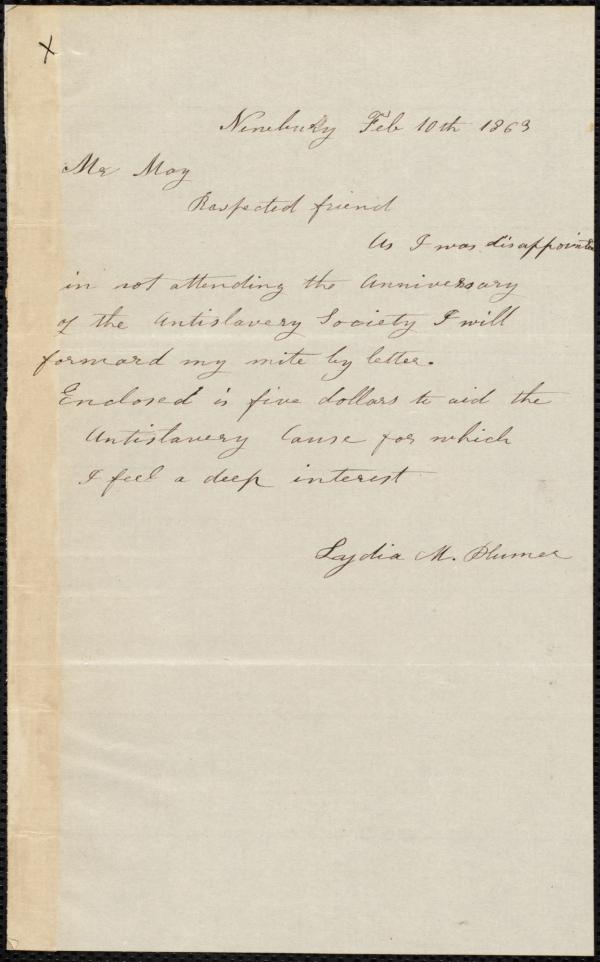 x
Newbury Feb 10th 1863
Mr May
Respected friend
As I was disappointed
in not attending the Anniversary
of the Antislavery Society I will
forward my mite by letter.
Enclosed is five dollars to aid the
Antislavery Cause for which
I feel a deep interest
Lydia M. Plumer